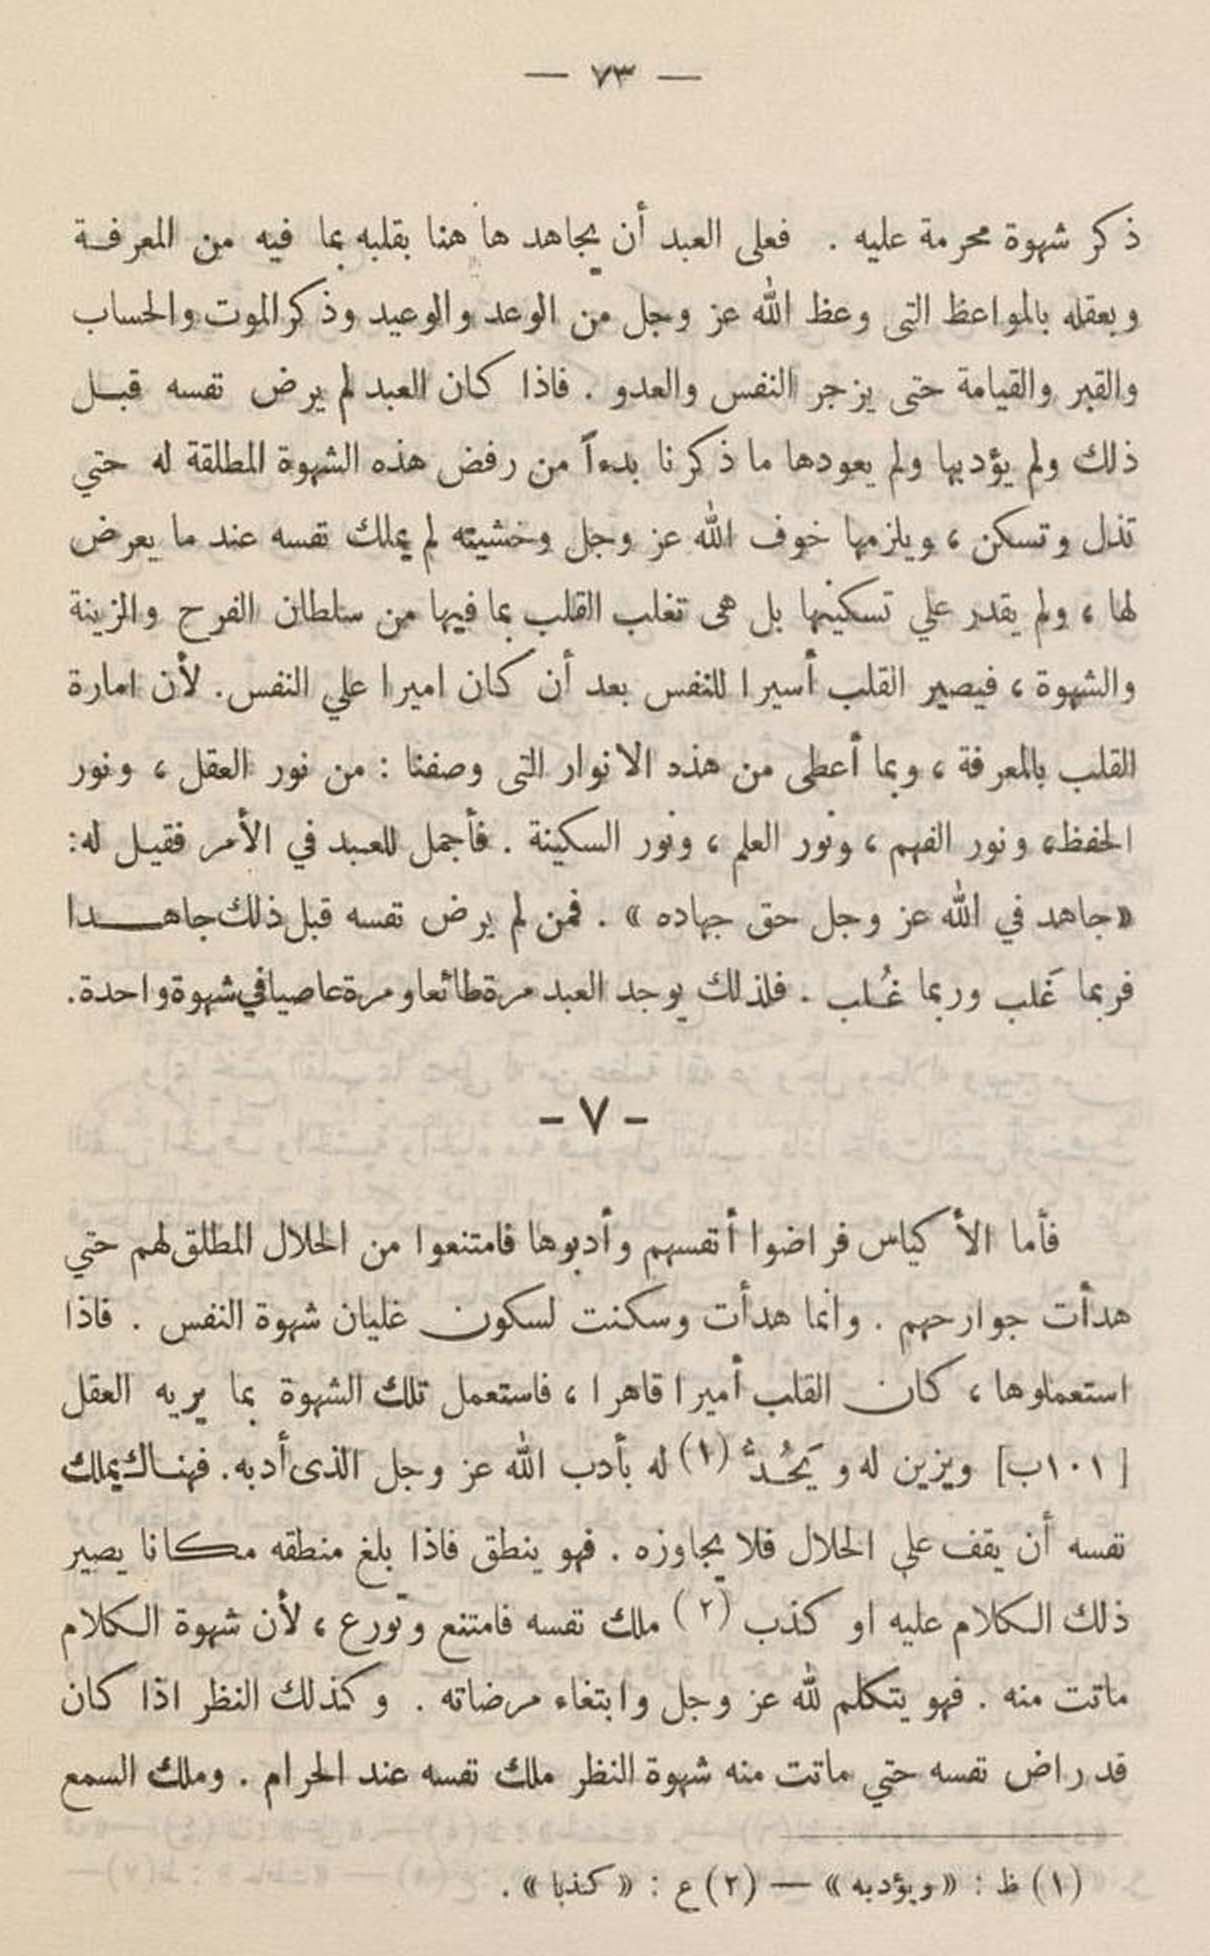 — ٧٣ —
ذكر شهوة محرمة عليه . فعلى العبد أن يجاهد ها هنا بقلبه بما فيه من المعرفة
وبعقله بالمواعظ التى وعظ الله عز وجل من الوعد والوعيد وذكر الموت والحساب
والقبر والقيامة حتى يزجر النفس والعدو . فاذا كان العبد لم يرض نفسه قبل
ذلك ولم يؤدبها ولم يعودها ما ذكرنا بدءاً من رفض هذه الشهوة المطلقة له حتي
تذل وتسكن ، ويلزمها خوف الله عز وجل وخشيته لم يملك نفسه عند ما يعرض
لها ، ولم يقدر علي تسكينها بل هى تغلب القلب بما فيها من سلطان الفرح والزينة
والشهوة ، فيصير القلب أسيرا للنفس بعد أن كان اميرا علي النفس . لأن امارة
القلب بالمعرفة ، وبما أعطى من هذه الانوار التى وصفنا : من نور العقل ، ونور
الحفظ، ونور الفهم ، ونور العلم ، ونور السكينة . فأجمل للعبد في الأمر فقيل له:
«جاهد في الله عز وجل حق جهاده » . فمن لم يرض نفسه قبل ذلك جاهدا
فربما غَلب وربما غُلب . فلذلك يوجد العبد مرة طائعا ومرة عاصيا في شهوة واحدة.
- ٧ -
فأما الأكياس فراضوا أنفسهم وأدبوها فامتنعوا من الحلال المطلق لهم حتي
هدأت جوارحهم . وانما هدأت وسكنت لسكون غليان شهوة النفس . فاذا
استعملوها ، كان القلب أميرا قاهرا ، فاستعمل تلك الشهوة بما يريه العقل
[١٠١ب] ويزين له ويَحُدُّ (١) له بأدب الله عز وجل الذى أدبه. فهناك يملك
نفسه أن يقف علي الحلال فلا يجاوزه . فهو ينطق فاذا بلغ منطقه مكانا يصير
ذلك الكلام عليه او كذب (٢) ملك نفسه فامتنع وتورع ، لأن شهوة الكلام
ماتت منه . فهو يتكلم لله عز وجل وابتغاء مرضاته . وكذلك النظر اذا كان
قد راض نفسه حتي ماتت منه شهوة النظر ملك نفسه عند الحرام . وملك السمع
(١) ظ : «ويؤدبه» — (٢) ع : «كذبا» .